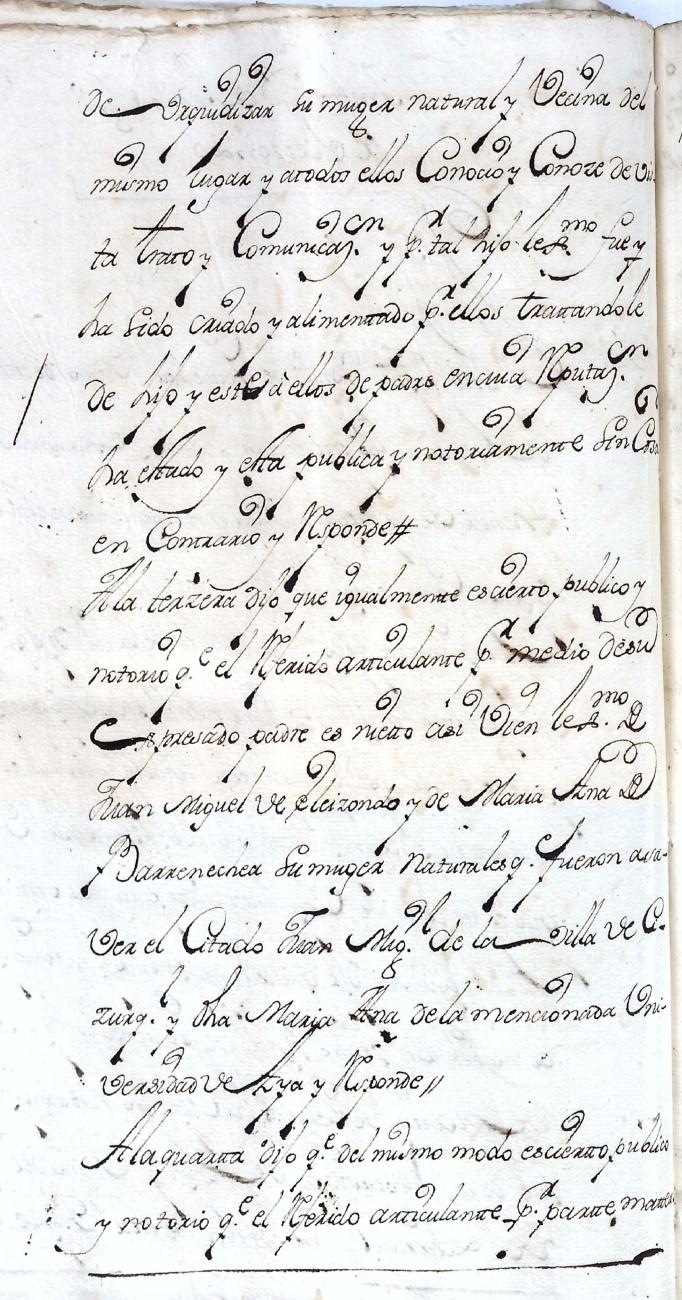 de Urquidizar su muger natural y Vecina del
mismo lugar y atodos ellos Conoció y Conoze de vis
ta trato y Comunicaz.on y p.r tal hijo lex.mo fue y
ha sido criado y alimentado p.r ellos tratandole
de hijo y este à ellos de padre en cuia Reputaz.on
ha estado y esta publica y notoriamente sin Cosa
en Contrario y Responde//
Ala terzera dijo que igualmente es cierto publico y
notorio q.e el Referido articulante p.r medio de su
Espresado padre es nietto asi vien lex.mo de
Juan Miguel de Eleizondo y de Maria Ana de
Barrenechea su muger Naturales q.e fueron asa-
ver el Citado Juan Mig.l de la Villa de E-
zurq. y dha Maria Ana de la mencionada Uni-
versidad de Lya y Responde//
Ala quarta dijo q.e del mismo modo es cierto publico
y notorio q.e el Referido articulante p.r parte mater